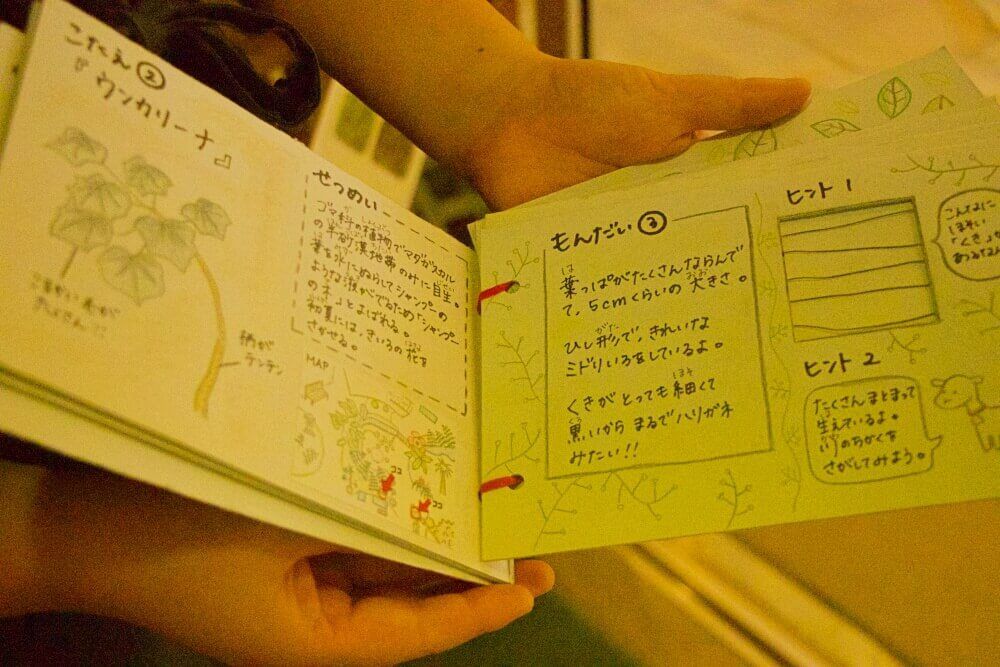 こたえ②
『ウンカリーナ』
柄が
テンテン
せつめい
ゴマ科の植物でマダガスカル
の半砂漠地帯のみに自生。
葉を水にぬらしてシャンプーの
ような液がでるため「シャンプー
の木」とよばれる。
初夏には、きいろの花を
さかせる。
MAP
ココ
ココ
もんだい③
葉っぱがたくさんならんで
て、5cmくらいの大きさ。
ひし形で、きれいな
ミドリいろをしているよ。
くきがとっても細くて
黒いから まるでハリガネ
みたい!!
ヒント1
こんなに
ほそい
「くき」が
あるなんて
ヒント2
たくさんまとまって
生えているよ。
川のちかくを
さがしてみよう。